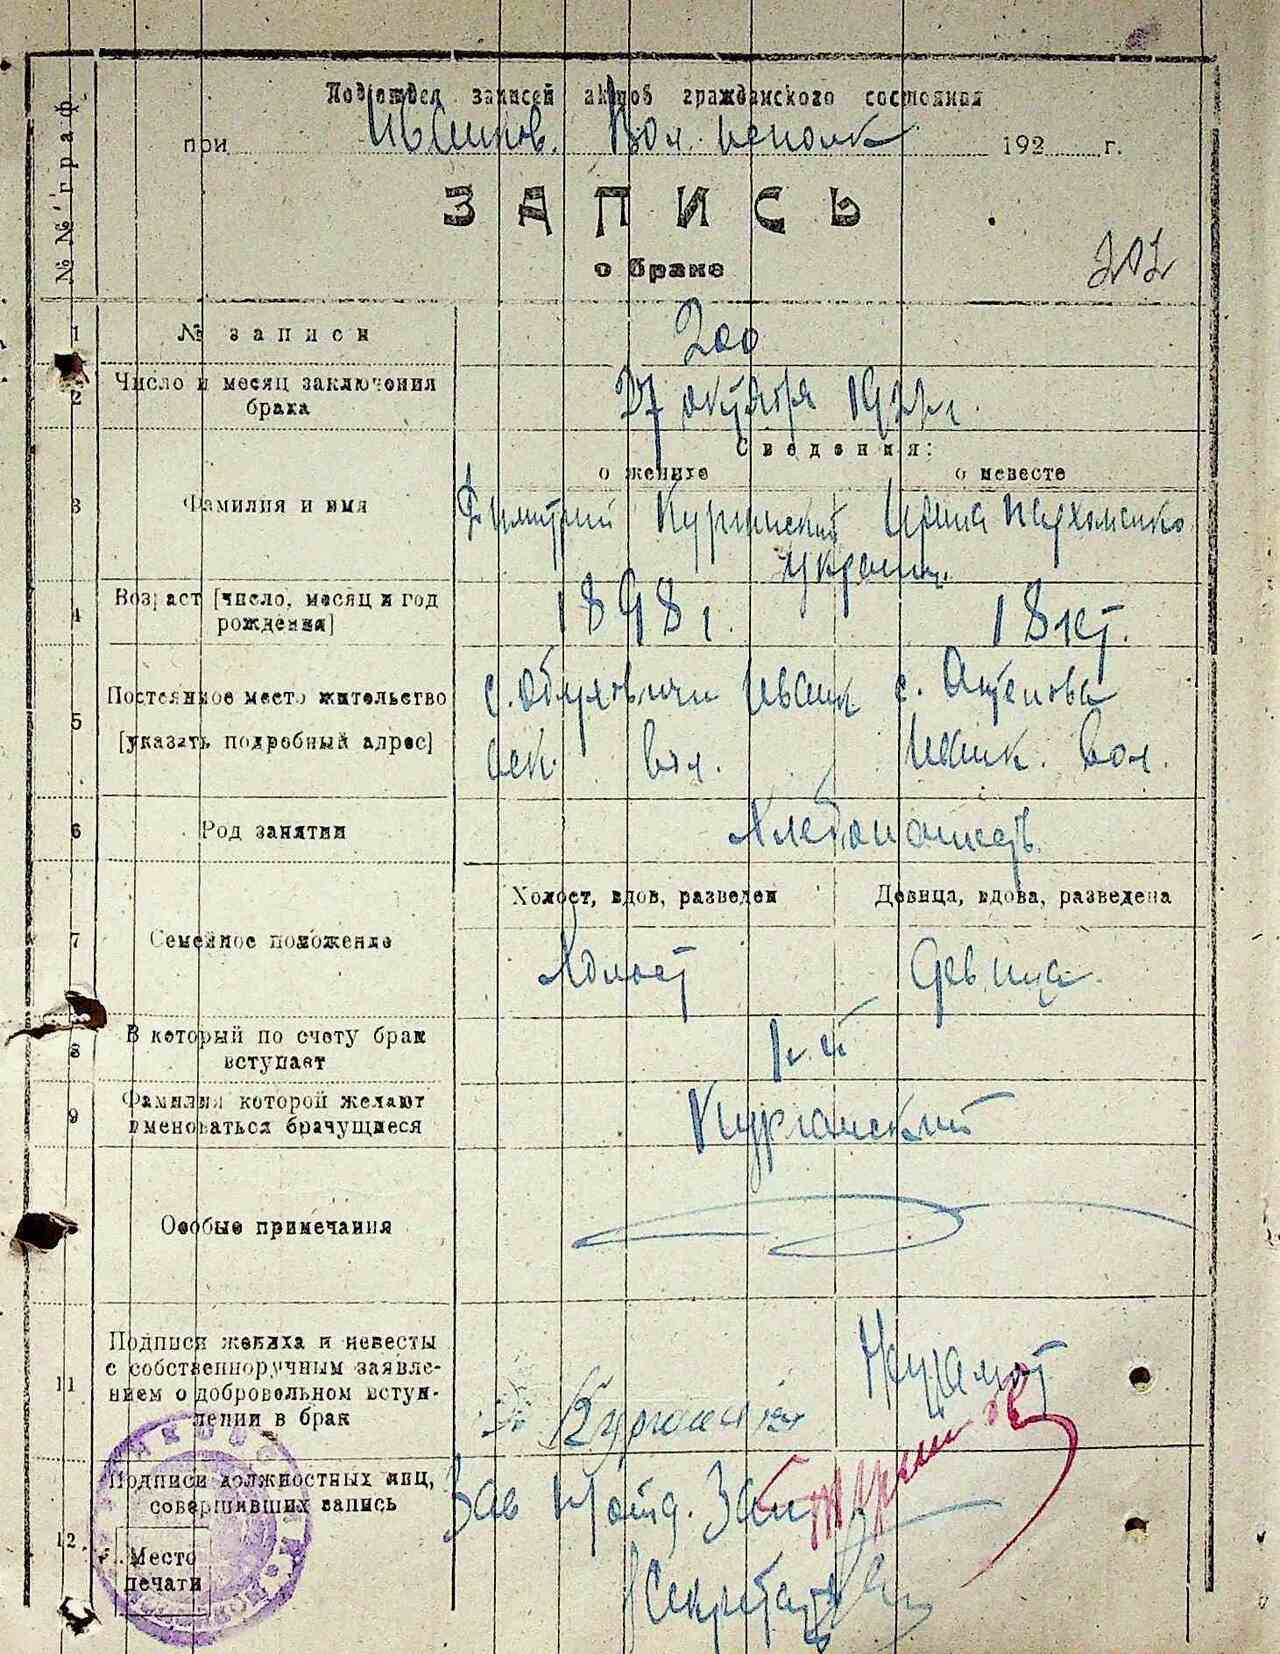 Подотдел записей актов гражданского состояния
при Иванков. Вол. исполк 192 г.
ЗАПИСЬ
о браке
202
№№ граф.
1 № записи 200
2 Число и месяц заключения брака 27 октября 1922 г.
Сведения:
о женихе о невесте
3 Фамилия и имя Димитрий Курганский Ирина Пархоменко
украин.
4 Возраст [число, месяц и год рождения] 1898 г. 18 лет.
5 Постоянное место жительство с. Обуховичи Иванк с. Оптепова
[указать подробный адрес] вол. Иванк. вол.
6 Род занятии Хлебопашедъ
Холост, вдов, разведен Девица, вдова, разведена
7 Семейное положение Холост Девица
8 В который по счету брак вступает 1-й
9 Фамилия которой желают именоваться брачущиеся Курганский
Особые примечания
11 Подписи жениха и невесты
с собственноручным заявле-
нием о добровольном вступ-
лении в брак
Курганский
12 Подписи должностных лиц,
совершивших запись
Зав
Секретарь
Место
печати